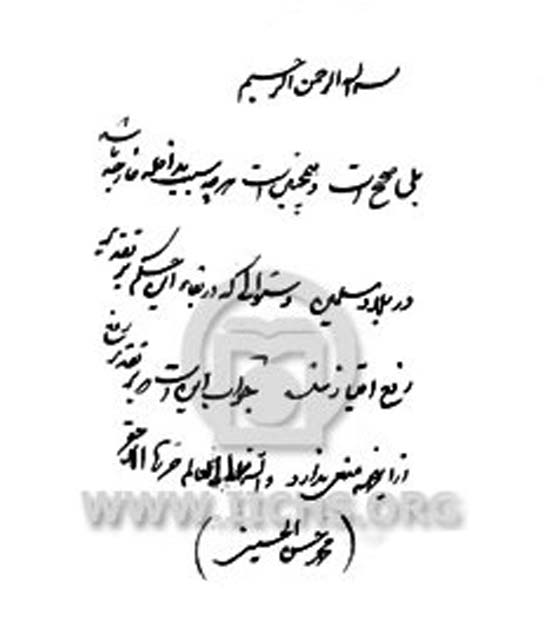 بسم الله الرحمن الرحیم
بلی صحیح است و همچنین است هر چه سبب مداخله خارجه باشد
در بلاد مسلمین و سئوالی که در بقاء این حکم بر تقدیر
رفع امتیاز جواب این است بر تقدیر رفع
از این جهة منعی ندارد والله تعالی العالم حرره الاحقر
(محمد حسن الحسینی)
WWW.IICHS.ORG